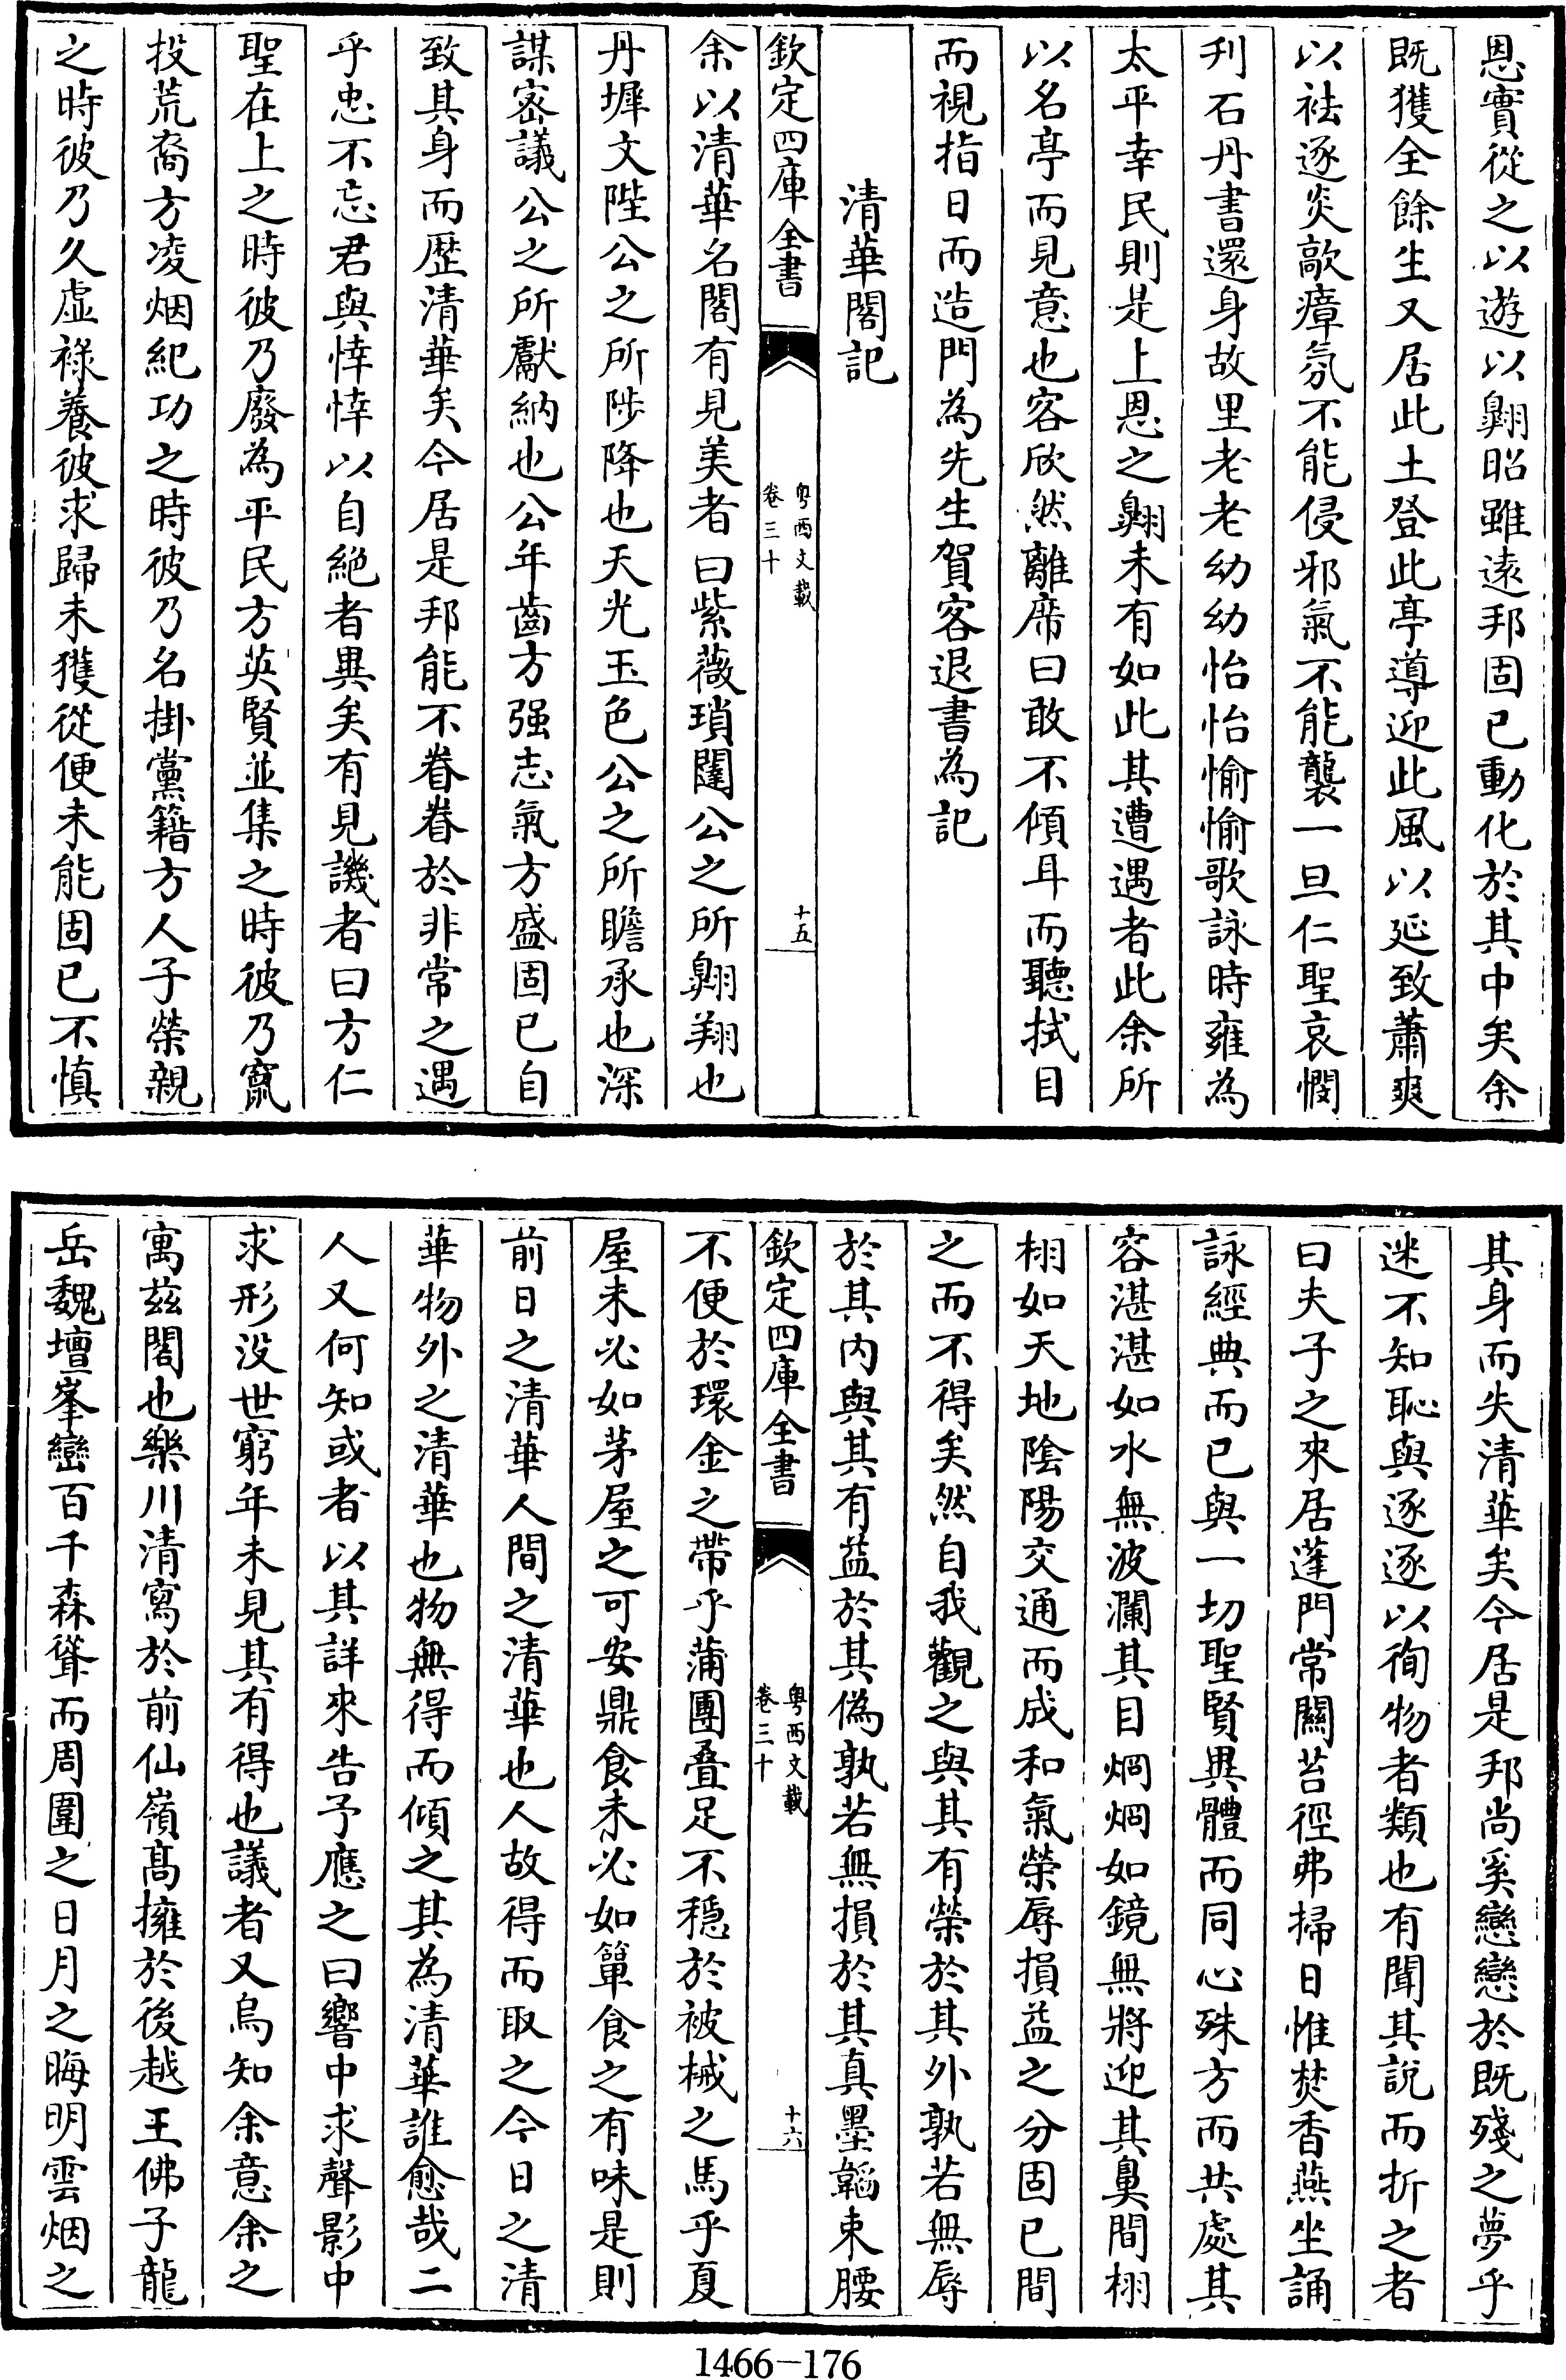 恩實從之以遊以翺昭雖逺邦固已動化於其中矣余
既獲全餘生又居此土登此亭導迎此風以延致蕭爽
以袪逐炎歊瘴氛不能侵邪氣不能襲一旦仁聖哀憫
刋石丹書還身故里老老幼幼怡怡愉愉歌詠時雍為
太平幸民則是上恩之翺未有如此其遭遇者此余所
以名亭而見意也客欣然離席曰敢不傾耳而聽拭目
而視指日而造門為先生賀客退書為記
清華閣記
欽定四庫全書
粤西文載
卷三十
十五
余以清華名閣有見美者曰紫薇瑣闥公之所翺翔也
丹墀文陛公之所陟降也天光玉色公之所瞻承也深
謀宻議公之所獻納也公年齒方强志氣方盛固已自
致其身而歴清華矣今居是邦能不眷眷於非常之遇
乎忠不忘君與悻悻以自絶者異矣有見譏者曰方仁
聖在上之時彼乃廢為平民方英賢並集之時彼乃竄
投荒裔方凌烟紀功之時彼乃名掛黨籍方人子榮親
之時彼乃久虛祿養彼求歸未獲從便未能固已不慎
其身而失清華矣今居是邦尚奚戀戀於既殘之夢乎
迷不知恥與逐逐以徇物者類也有聞其說而折之者
曰夫子之來居蓬門常闗苔徑弗掃日惟焚香燕坐誦
詠經典而已與一切聖賢異體而同心殊方而共處其
容湛湛如水無波瀾其目烱烱如鏡無將迎其鼻間栩
栩如天地隂陽交通而成和氣榮辱損益之分固已間
之而不得矣然自我觀之與其有榮於其外孰若無辱
於其内與其有益於其偽孰若無損於其真墨韜束腰
欽定四庫全書
粤西文載
卷三十
十六
不便於環金之帶乎蒲團疊足不穏於被械之馬乎夏
屋未必如茅屋之可安鼎食未必如簞食之有味是則
前日之清華人間之清華也人故得而取之今日之清
華物外之清華也物無得而傾之其為清華誰愈哉二
人又何知或者以其詳來告予應之曰響中求聲影中
求形没世窮年未見其有得也議者又烏知余意余之
寓兹閣也樂川清寫於前仙嶺髙擁於後越王佛子龍
岳魏壇峯巒百千森聳而周圍之日月之晦明雲烟之
1466－176